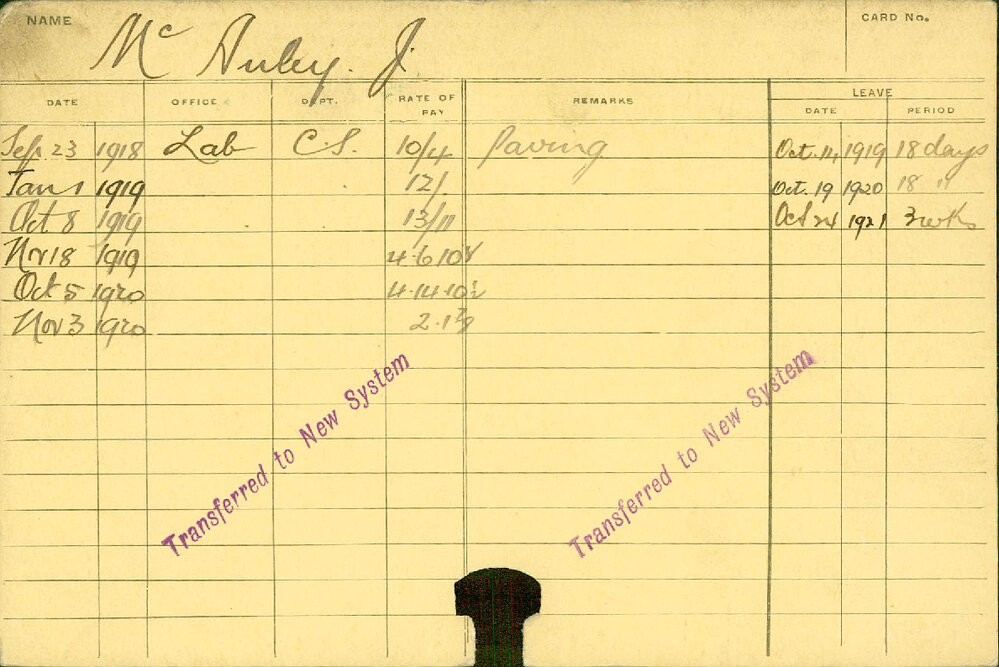 NAME Mc Auley. J. CARD No.
LEAVE
DATE OFFICE DEPT. RATE OF PAY REMARKS DATE PERIOD
Sep 23 1918 Lab C.S. 10/4 Paving Oct. 11, 1919 18 days
Jan 1 1919 12/. Oct. 19 1920 18 "
Oct 8 1919 13/11 Oct 24 1921 3 wks
Nov 18 1919 4.6.10½
Oct 5 1920 4.14.10½
Nov 3 1920
Transferred to New System
Transferred to New System